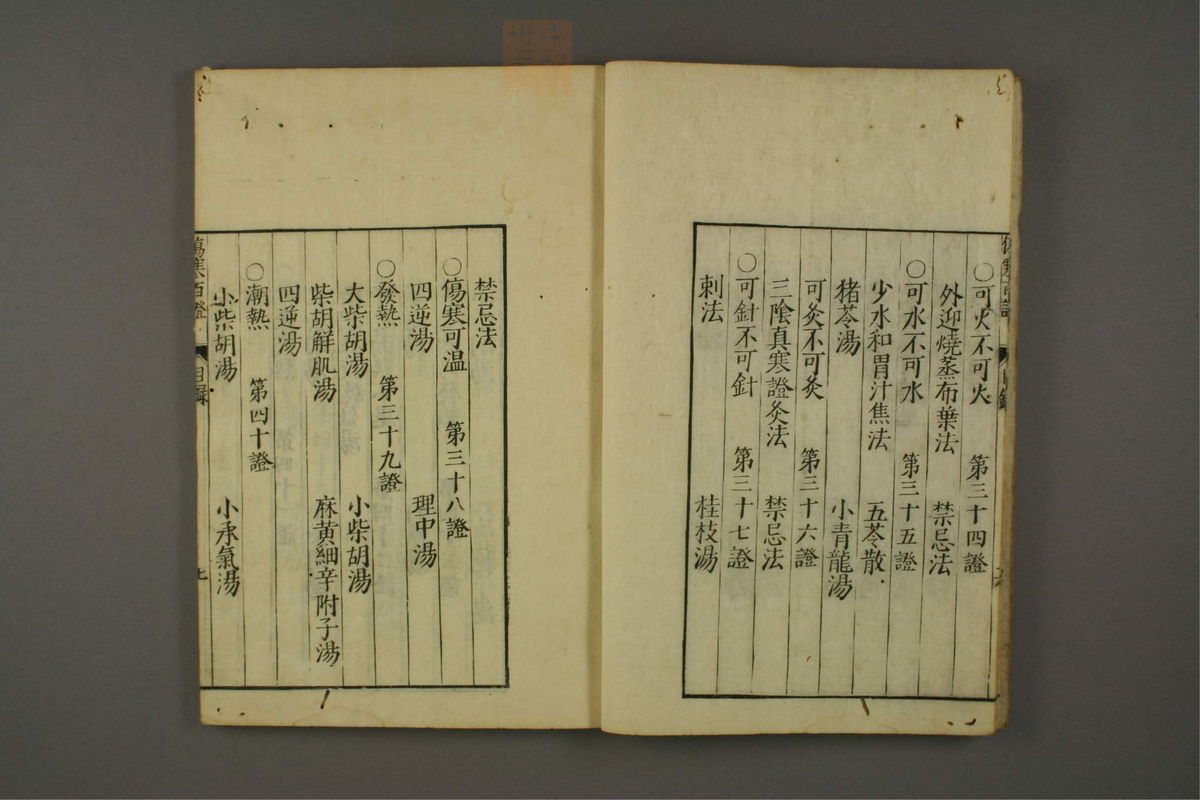 ○可火不可火　第三十四證
外迎燒蒸布葉法　禁忌法
○可水不可水　第三十五證
少水和胃汁焦法　五苓散
猪苓湯　小青龍湯
可灸不可灸　第三十六證
三陰真寒證灸法　禁忌法
○可針不可針　第三十七證
刺法　桂枝湯
禁忌法
○傷寒可温　第三十八證
四逆湯　理中湯
○發熱　第三十九證
大柴胡湯　小柴胡湯
柴胡解肌湯　麻黄細辛附子湯
四逆湯
○潮熱　第四十證
小柴胡湯　小承氣湯
傷寒百證　目録　七